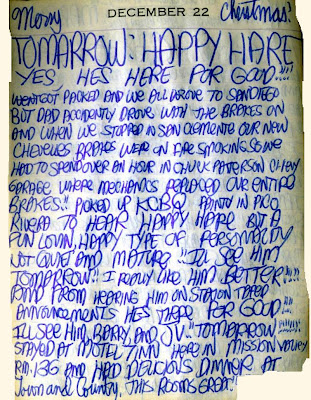 Merry Christmas!
DECEMBER 22
TOMARROW: HAPPY HARE
YES HES HERE FOR GOOD!!!!
WENT GOT PACKED AND WE ALL DROVE TO SANDIEGO
BUT DAD ACCIDENTLY DROVE WITH THE BRAKES ON
AND WHEN WE STOPPED IN SAN CLEMENTE OUR NEW
CHEVELLES BRAKES WERE ON FIRE SMOKING SO WE
HAD TO SPEND OVER AN HOUR IN CHUCK PATERSON CHEVY
GARAGE WHERE MECHANICS REPLACED OUR ENTIRE
BRAKES!! PICKED UP KCBQ FAINTLY IN PICO
RIVERA TO HEAR HAPPY HARE BUT A
FUN LOVIN, HAPPY TYPE OF PERSONALITY
NOT QUIET AND MATURE!! ILL SEE HIM
TOMORROW!! I REALLY LIKE HIM BETTER!!!!
AND FROM HEARING HIM ON STATION TAPED
ANNOUNCEMENTS HES THERE FOR GOOD!!
ILL SEE HIM, BARRY, AND JV!! TOMORROW!!!!!!
STAYED AT MOTEL 7 INN HERE IN MISSION VALLEY
RM. 136 AND HAD DELICIOUS DINNER AT
Town and Country. THIS ROOMS GREAT!!